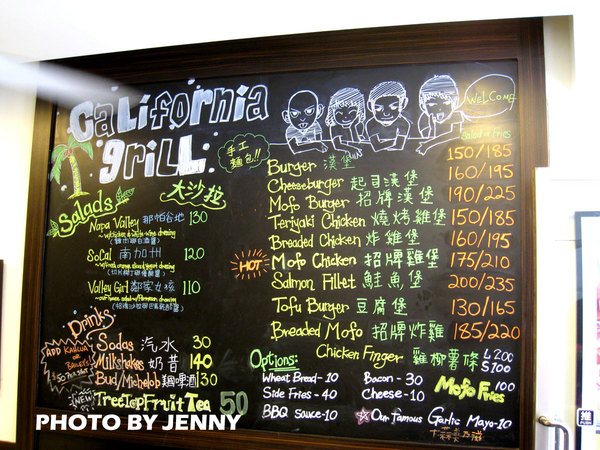 California
grill
WELCOME
手工
麵包!!
Salads
大沙拉
Napa Valley 那帕谷地 130
SoCal 南加州 120
Valley Girl 鄰家女孩 110
Salad or Fries
Burger 漢堡 150/185
Cheeseburger 起司漢堡 160/195
Mofo Burger 招牌漢堡 190/225
Teriyaki Chicken 燒烤雞堡 150/185
Breaded Chicken 炸雞堡 160/195
HOT Mofo Chicken 招牌雞堡 175/210
Salmon Fillet 鮭魚堡 200/235
Tofu Burger 豆腐堡 130/165
Breaded Mofo 招牌炸雞 185/220
Chicken Finger 雞柳薯條 L200
S100
Drinks
ADD KAHLUA
OR
BAILEYS
Sodas 汽水 30
Milkshakes 奶昔 140
Bud/Michelob 啤酒 130
NEW
TreeTop Fruit Tea 50
Options:
Wheat Bread-10
Side Fries-40
BBQ Sauce-10
Bacon-30
Cheese-10
Mofo Fries 100
Our famous Garlic Mayo-10
推
PUSH
PHOTO BY JENNY